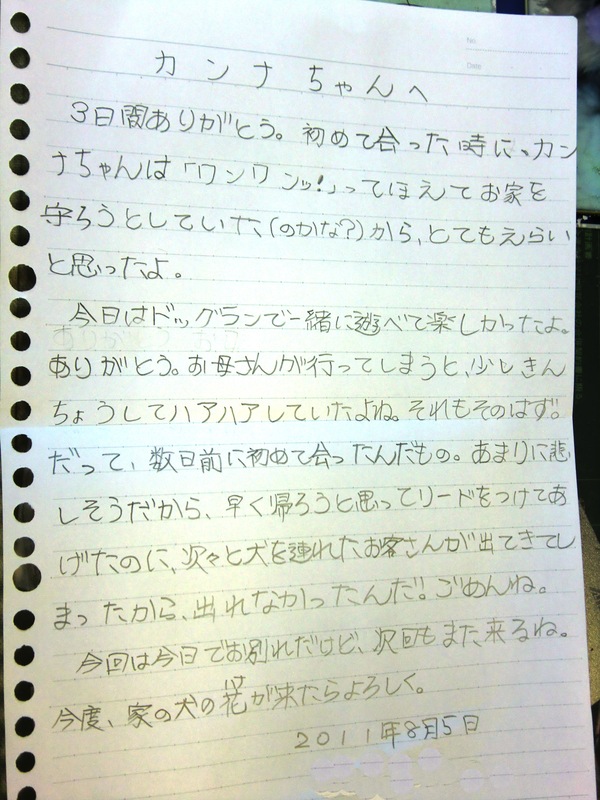 No.
Date
カンナちゃんへ
3日間ありがとう。初めて会った時に、カン
ナちゃんは「ワンワンッ!」ってほえてお家を
守ろうとしていた(のかな?)から、とてもえらい
と思ったよ。
今日はドッグランで一緒に遊べて楽しかったよ。
ありがとう。お母さんが行ってしまうと、少しきん
ちょうしてハアハアしていたよね。それもそのはず。
だって、数日前に初めて会ったんだもの。あまりに悲
しそうだから、早く帰ろうと思ってリードをつけてあ
げたのに、次々と犬を連れたお客さんが出てきてし
まったから、出れなかったんだ!ごめんね。
今回は今日でお別れだけど、次回もまた来るね。
今度、家の犬の花が来たらよろしく。
2011年8月5日